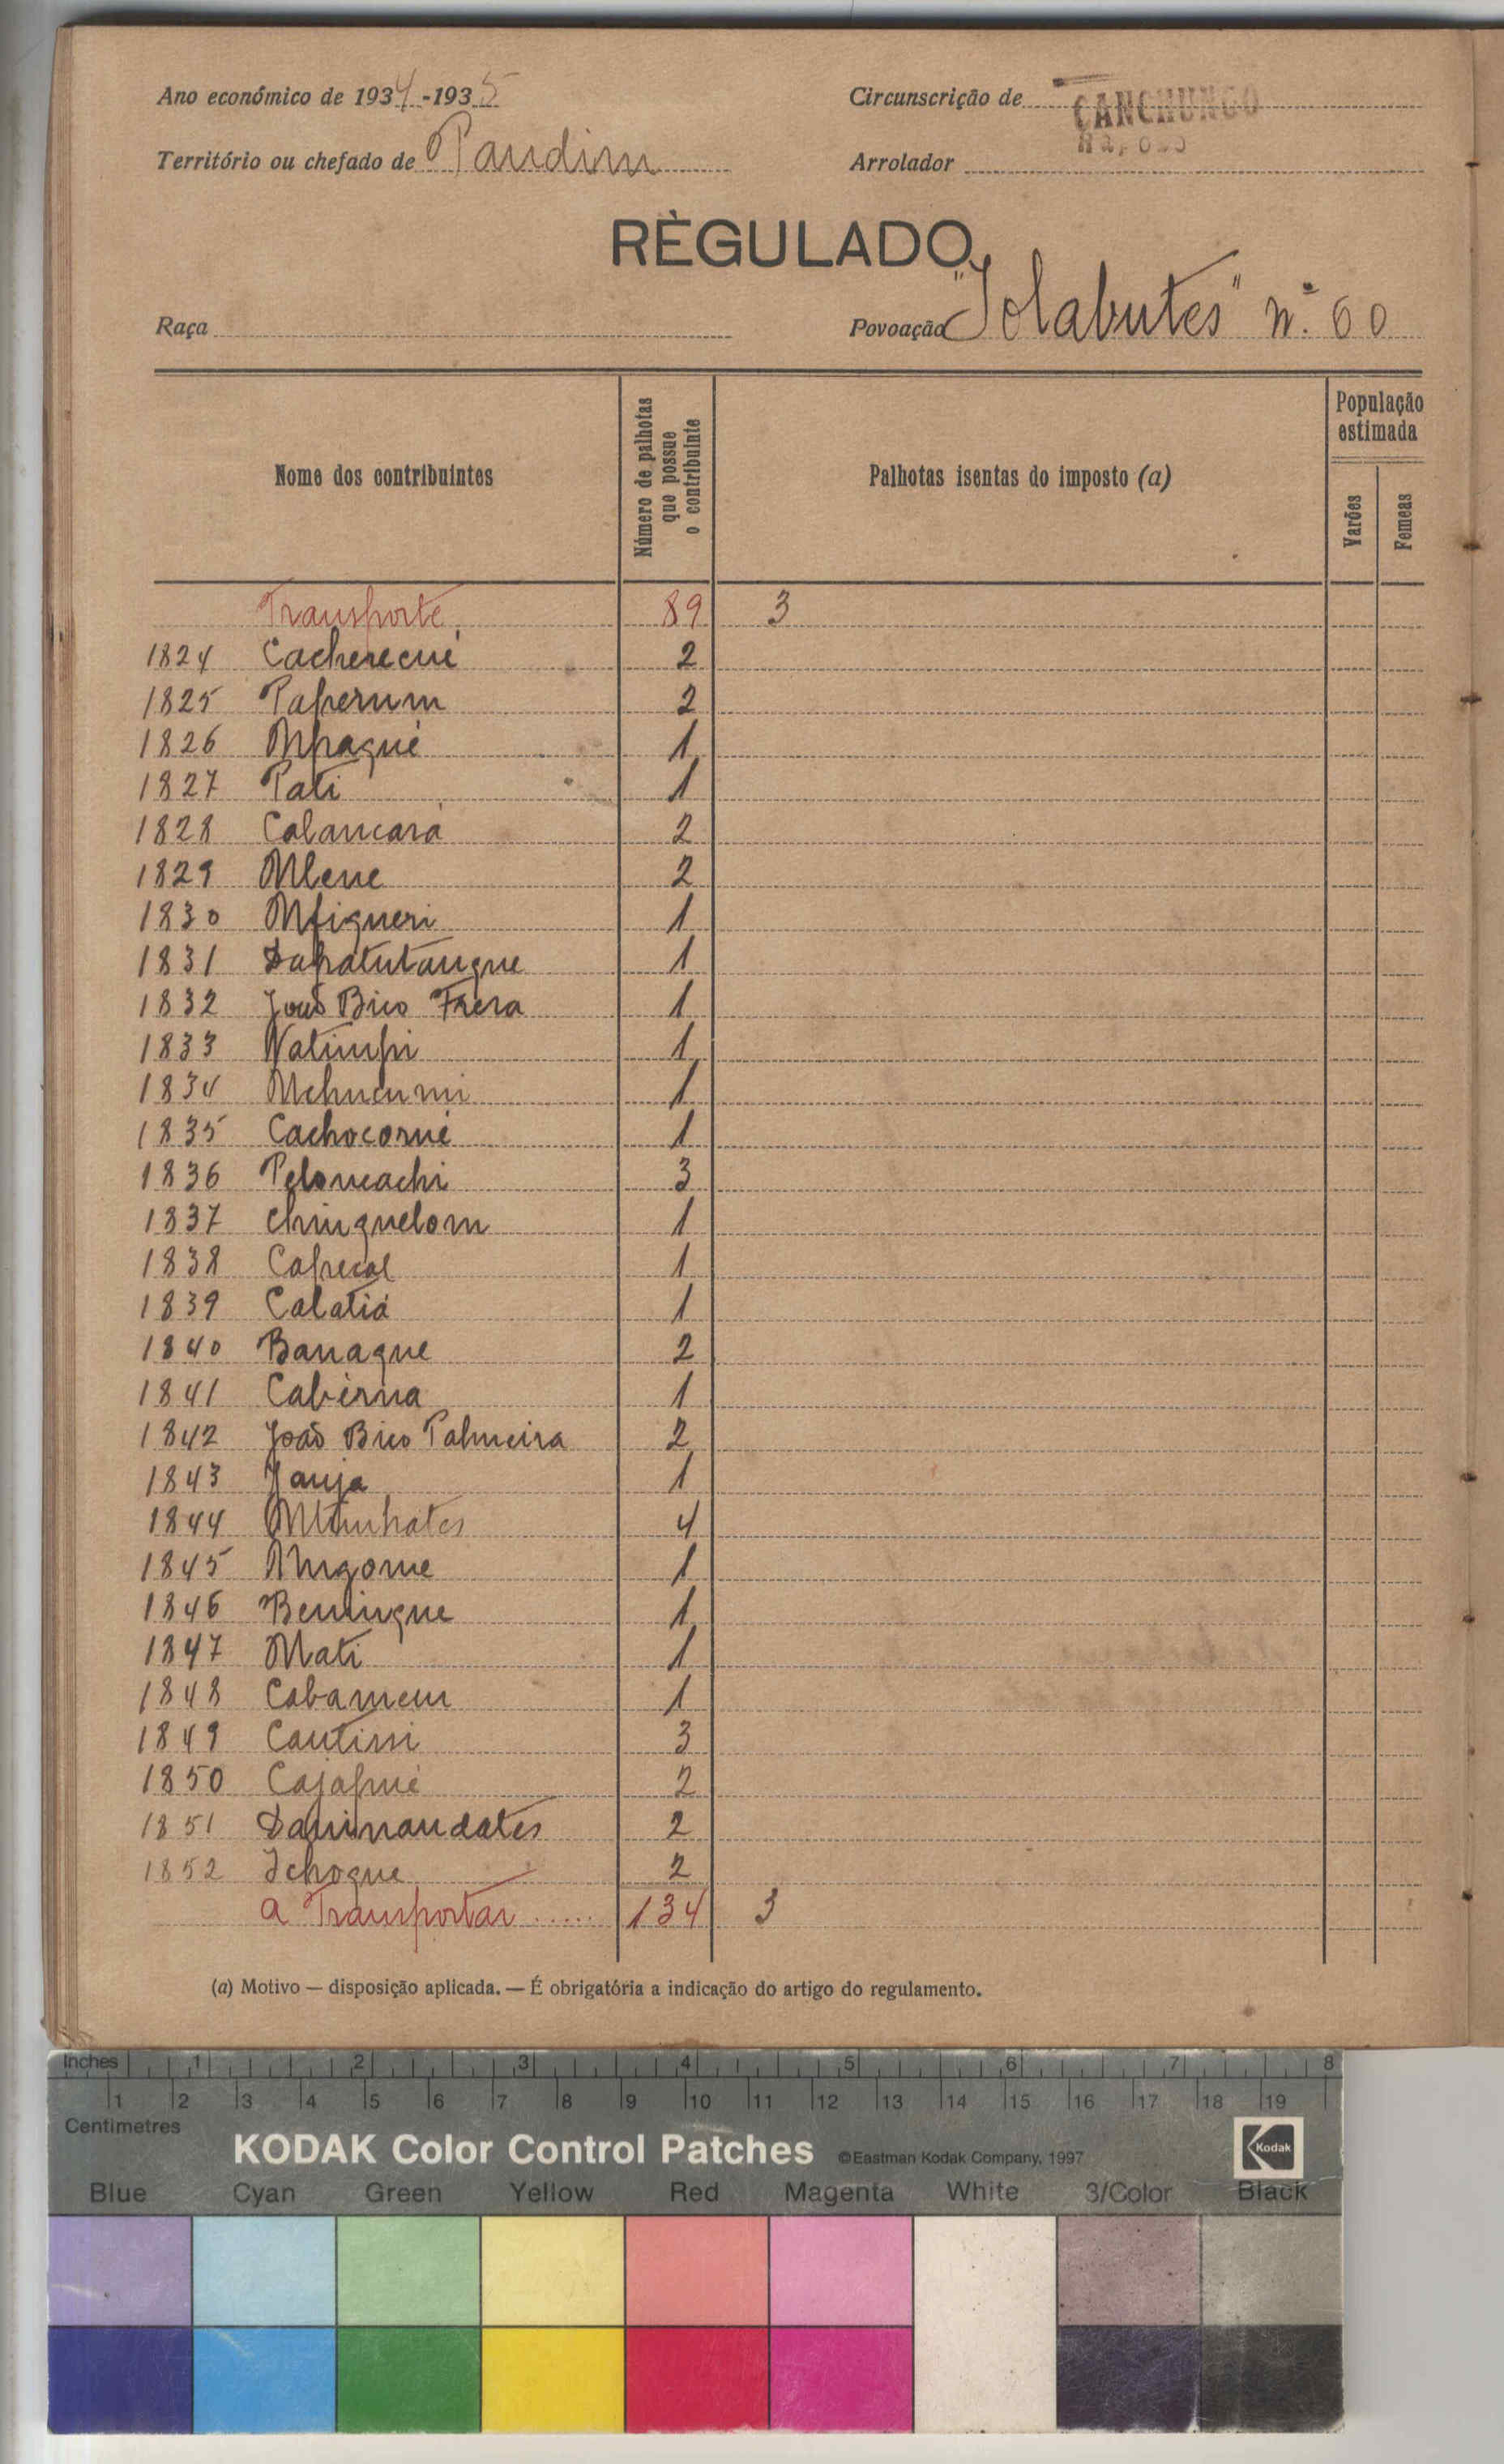 Ano económico de 1934-1935
Circunscrição de CANCHUNGO
Território ou chefado de Pandim
Arrolador
RÈGULADO
Raça
Povoação "Jolabutes" nº 60
Nome dos contribuintes
Número de palhotas que possue o contribuinte
Palhotas isentas do imposto (a)
População estimada
Varões
Femeas
Transporte 89 3
1824 Cacherecué 2
1825 Paperum 2
1826 Mpagué 1
1827 Pati 1
1828 Calancará 2
1829 Mlene 2
1830 Mfigueri 1
1831 Dapatutangue 1
1832 João Bico Frera 1
1833 Natimpi 1
1834 Mchucumi 1
1835 Cachocorné 1
1836 Pelomcachi 3
1837 Chinquelom 1
1838 Capecal 1
1839 Calatiá 1
1840 Banaque 2
1841 Cabérna 1
1842 João Bico Palmeira 2
1843 Janja 1
1844 4
1845 Angome 1
1846 Beningue 1
1847 Mati 1
1848 Cabamem 1
1849 Cautini 3
1850 Cajapué 2
1851 Daninandates 2
1852 Ichoque 2
a Transportar ..... 134 3
(a) Motivo — disposição aplicada. — É obrigatória a indicação do artigo do regulamento.
Inches 1 2 3 4 5 6 7 8
1 2 3 4 5 6 7 8 9 10 11 12 13 14 15 16 17 18 19
Centimetres
KODAK Color Control Patches ©Eastman Kodak Company, 1997 Kodak
Blue Cyan Green Yellow Red Magenta White 3/Color Black